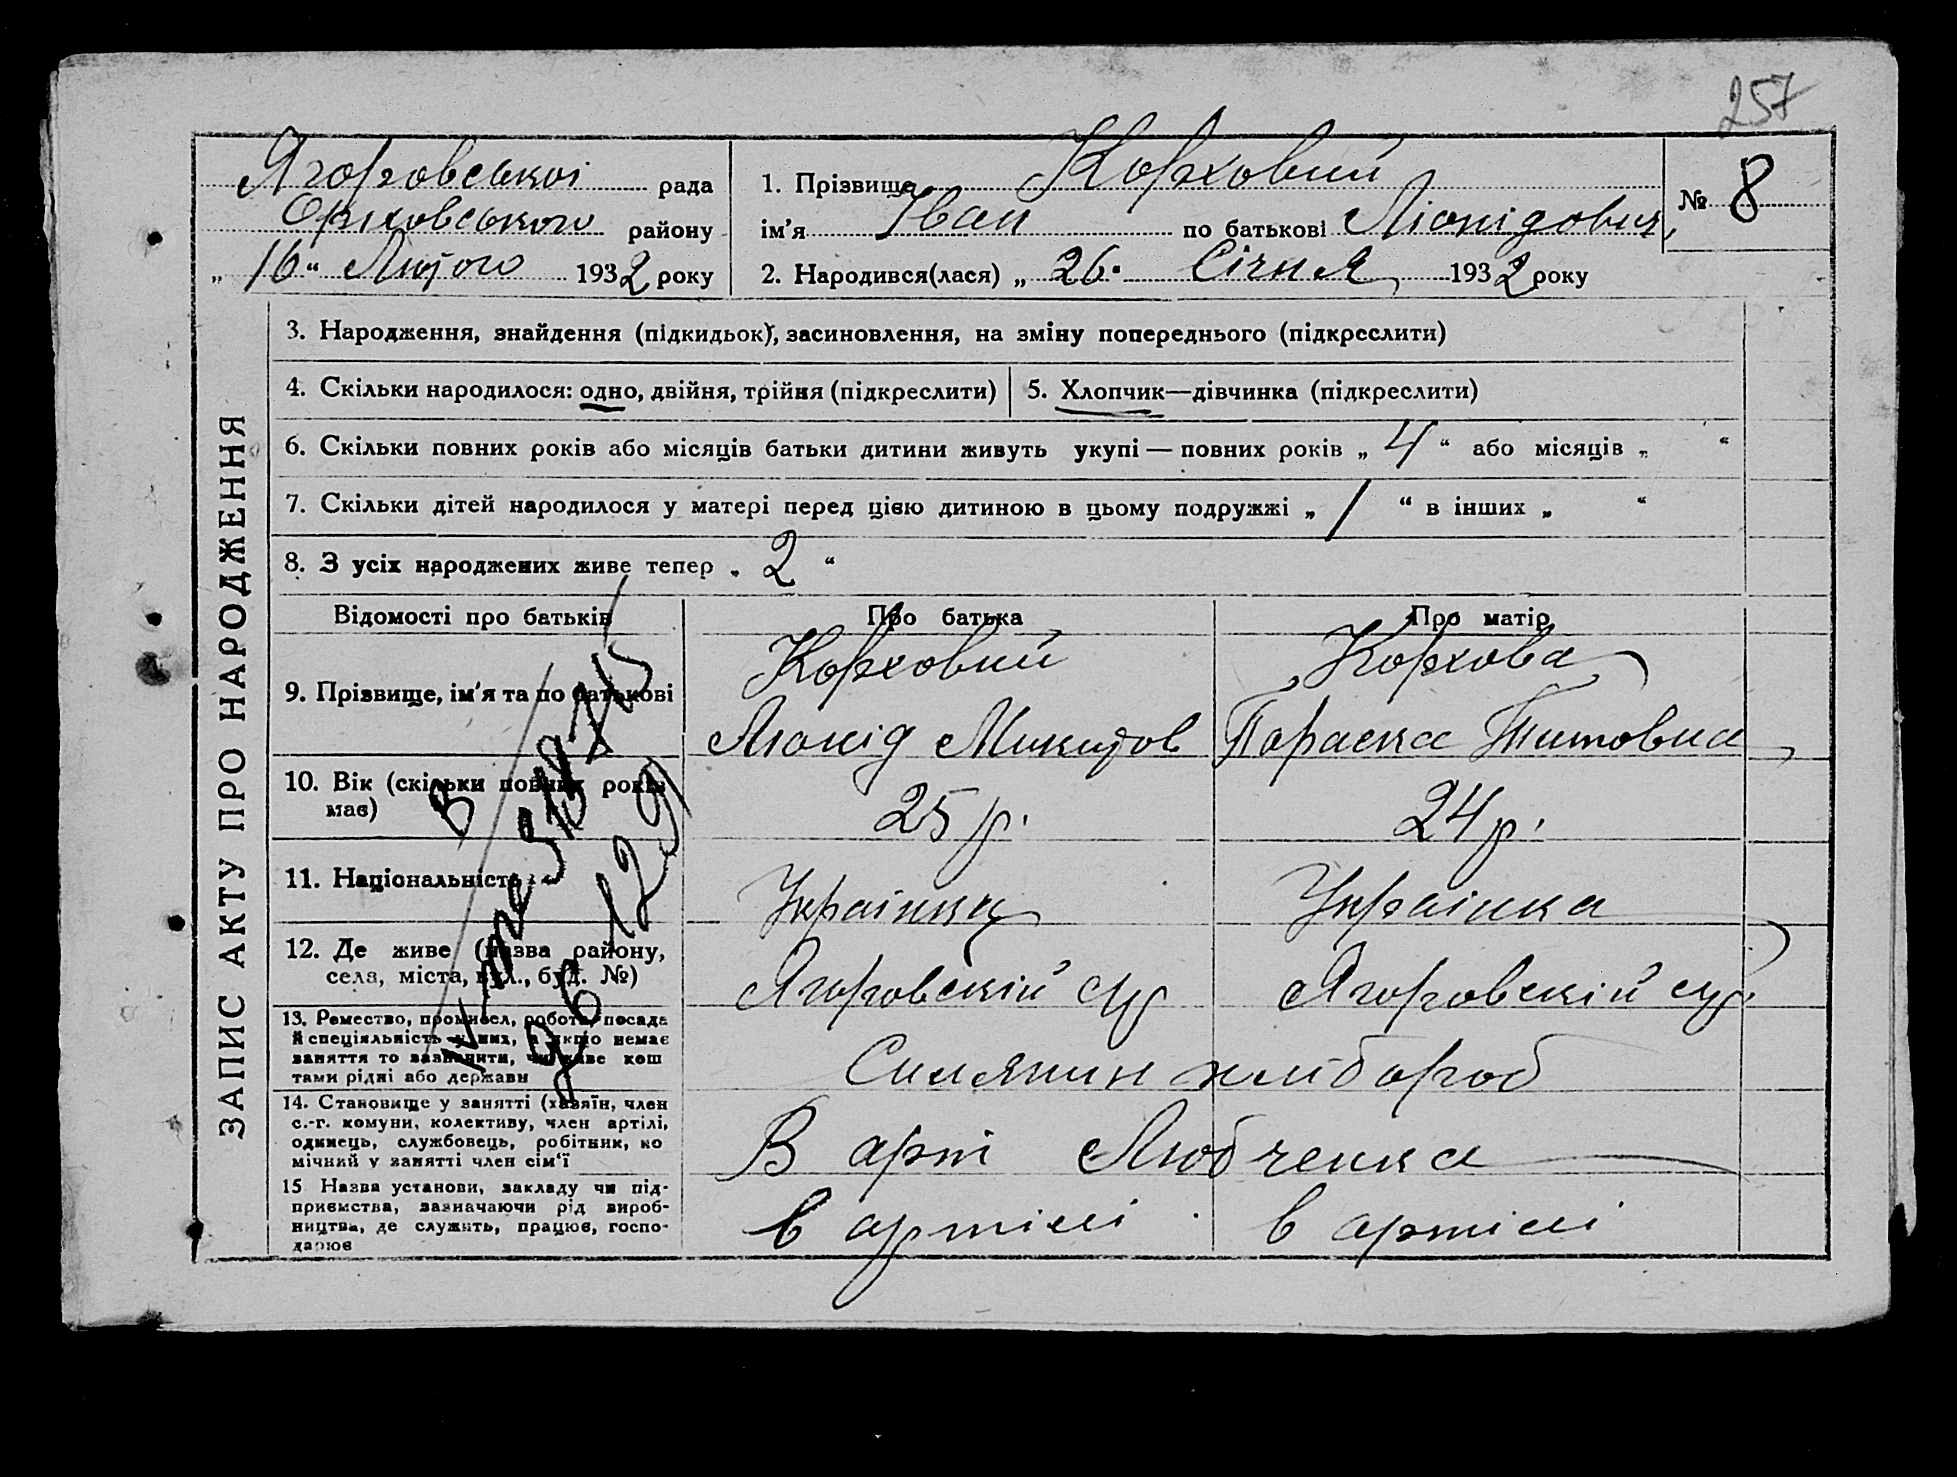 257
Ягоровської рада
Оріховського району
„16“ Лютого 1932 року
1. Прізвище Корховий
ім'я Іван по батькові Ліонідович
2. Народився(лася) „26“ Січня 1932 року
№ 8
ЗАПИС АКТУ ПРО НАРОДЖЕННЯ
3. Народження, знайдення (підкидьок), засиновлення, на зміну попереднього (підкреслити)
4. Скільки народилося: одно, двійня, трійня (підкреслити)
5. Хлопчик—дівчинка (підкреслити)
6. Скільки повних років або місяців батьки дитини живуть укупі — повних років „4“ або місяців „ “
7. Скільки дітей народилося у матері перед цією дитиною в цьому подружжі „1“ в інших „ “
8. З усіх народжених живе тепер „2“
Відомості про батьків Про батька Про матір
9. Прізвище, ім'я та по батькові
Корховий Корхова
Ліонід Микитов Параска Титовна
10. Вік (скільки повних років
має)
25 р. 24 р.
11. Національність
Українец Українка
12. Де живе (назва району,
села, міста, вул., буд. №)
Ягоровскій с/р Ягоровскій с/р.
13. Ремество, промисел, робота, посада
й спеціяльність у них, а якщо немає
заняття то зазначити, чи живе кош
тами рідні або держави
Силянин хлібороб
14. Становище у занятті (хазяїн, член
с.-г. комуни, колективу, член артілі,
одинець, службовець, робітник, по
мічний у занятті член сім'ї
В арті Любченка
15 Назва установи, закладу чи під-
приємства, зазначаючи рід вироб-
ництва, де служить, працює, госпо-
дарює
в артілі в артілі